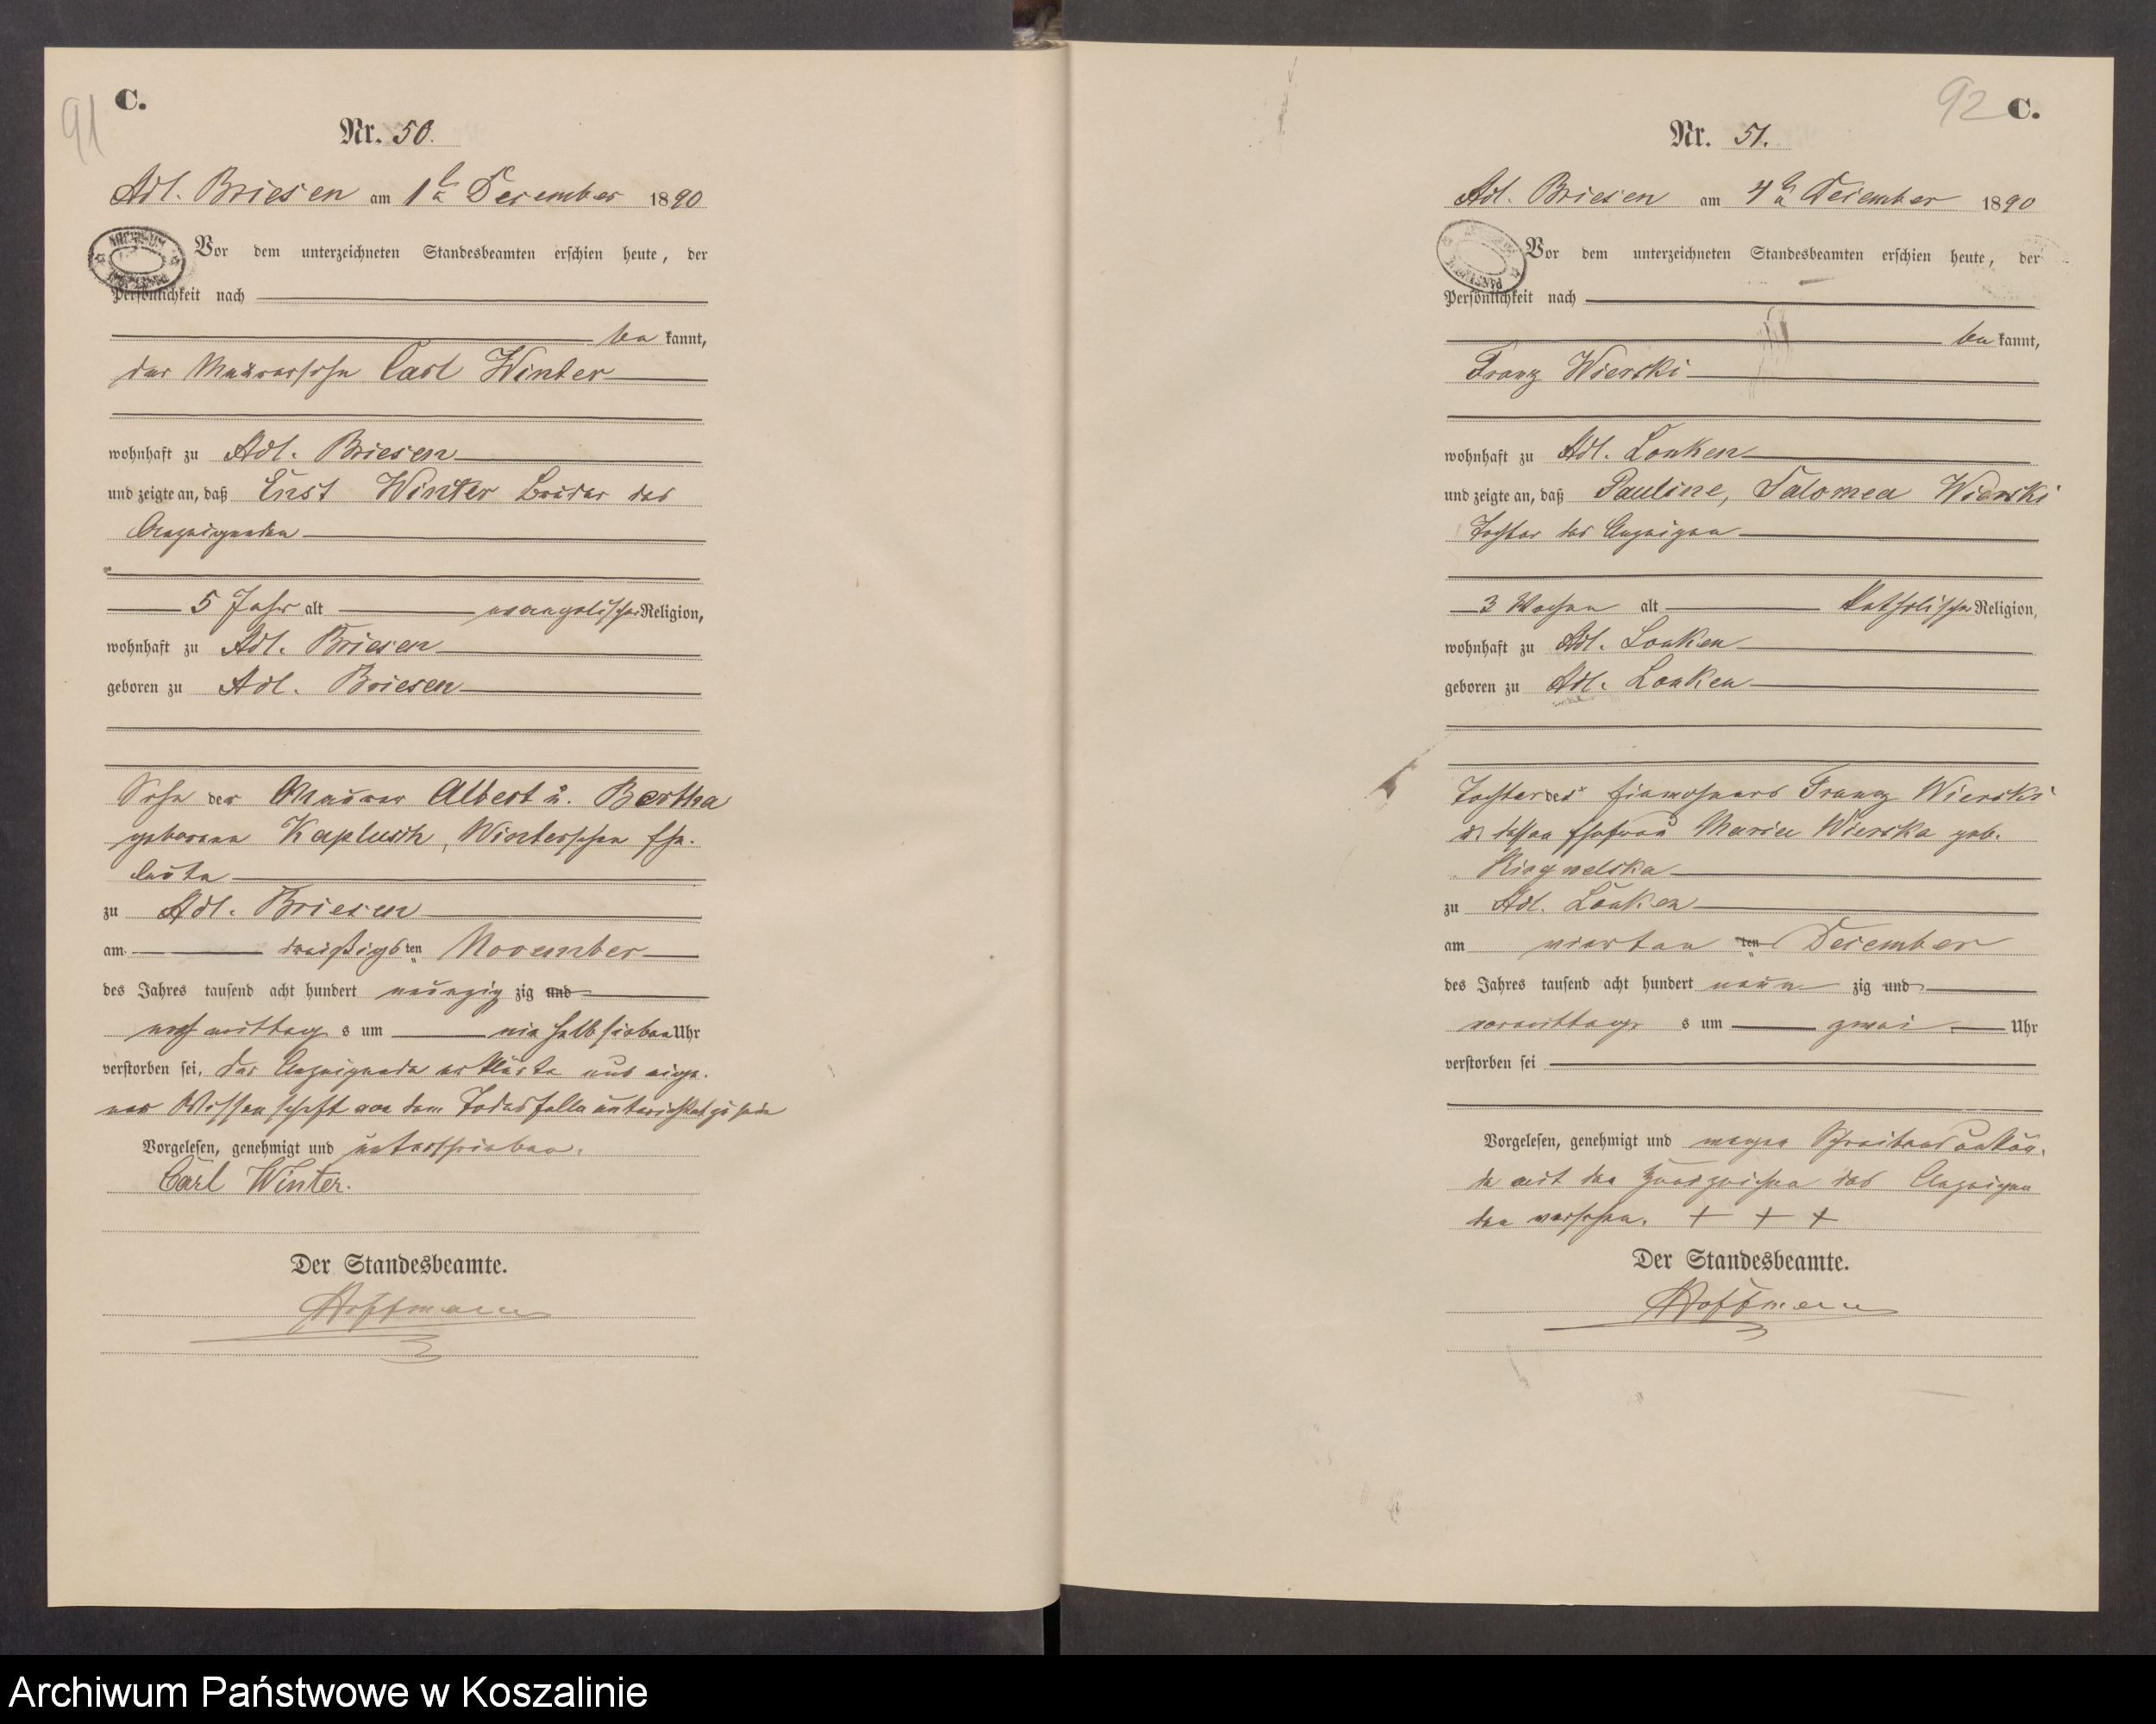 91
C.
Nr. 50.
Adl. Briesen am 1 ten December 1890
Vor dem unterzeichneten Standesbeamten erschien heute, der
Persönlichkeit nach
be kannt,
der Maurersohn Carl Winter
wohnhaft zu Adl. Briesen
und zeigte an, daß Ernst Winter Bruder des
Anzeigenden
5 Jahr alt evangelischer Religion,
wohnhaft zu Adl. Briesen
geboren zu Adl. Briesen
Sohn der Maurer Albert u. Bertha
geborene Kaplusch, Winterschen Ehe-
leute
zu Adl. Briesen
am dreißigs ten November
des Jahres tausend acht hundert neunzig zig und
nachmittag s um halb sieben Uhr
verstorben sei. Der Anzeigende erklärte aus eige-
ner Wissenschaft von dem Todesfalle unterrichtet zu sein
Vorgelesen, genehmigt und unterschrieben.
Carl Winter.
Der Standesbeamte.
Hoffmann
92 C.
Nr. 51.
Adl. Briesen am 4 ten December 1890
Vor dem unterzeichneten Standesbeamten erschien heute, der
Persönlichkeit nach
be kannt,
Franz Wierski
wohnhaft zu Adl. Lonken
und zeigte an, daß Pauline, Salomea Wierski
Tochter des Anzeigen
3 Wochen alt katholischer Religion,
wohnhaft zu Adl. Lonken
geboren zu Adl. Lonken
Tochter des Einwohners Franz Wierski
u. dessen Ehefrau Maria Wierska geb.
zu Adl. Lonken
am vierten ten December
des Jahres tausend acht hundert neun zig und
vormittag s um zwei Uhr
verstorben sei
Vorgelesen, genehmigt und wegen Schreibensunkun-
de mit den Kreuzzeichen des Anzeigen
den versehen. + + +
Der Standesbeamte.
Hoffmann
Archiwum Państwowe w Koszalinie